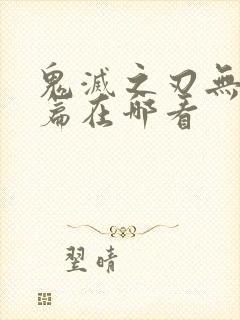 鬼滅之刃無
篇在哪看
翌晴